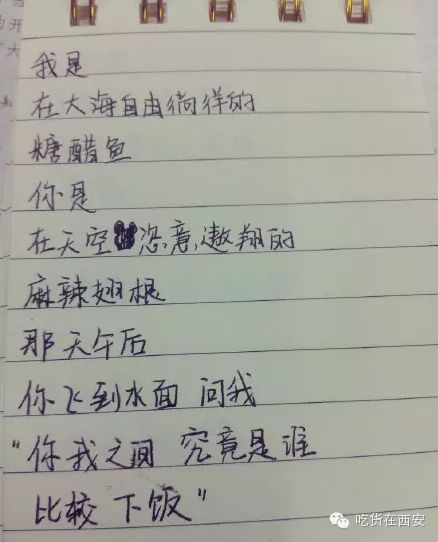 我是
在大海自由徜徉的
糖醋鱼
你是
在天空恣意遨翔的
麻辣翅根
那天午后
你飞到水面 问我
"你我之间 究竟是谁
比较 下饭"
吃货在西安